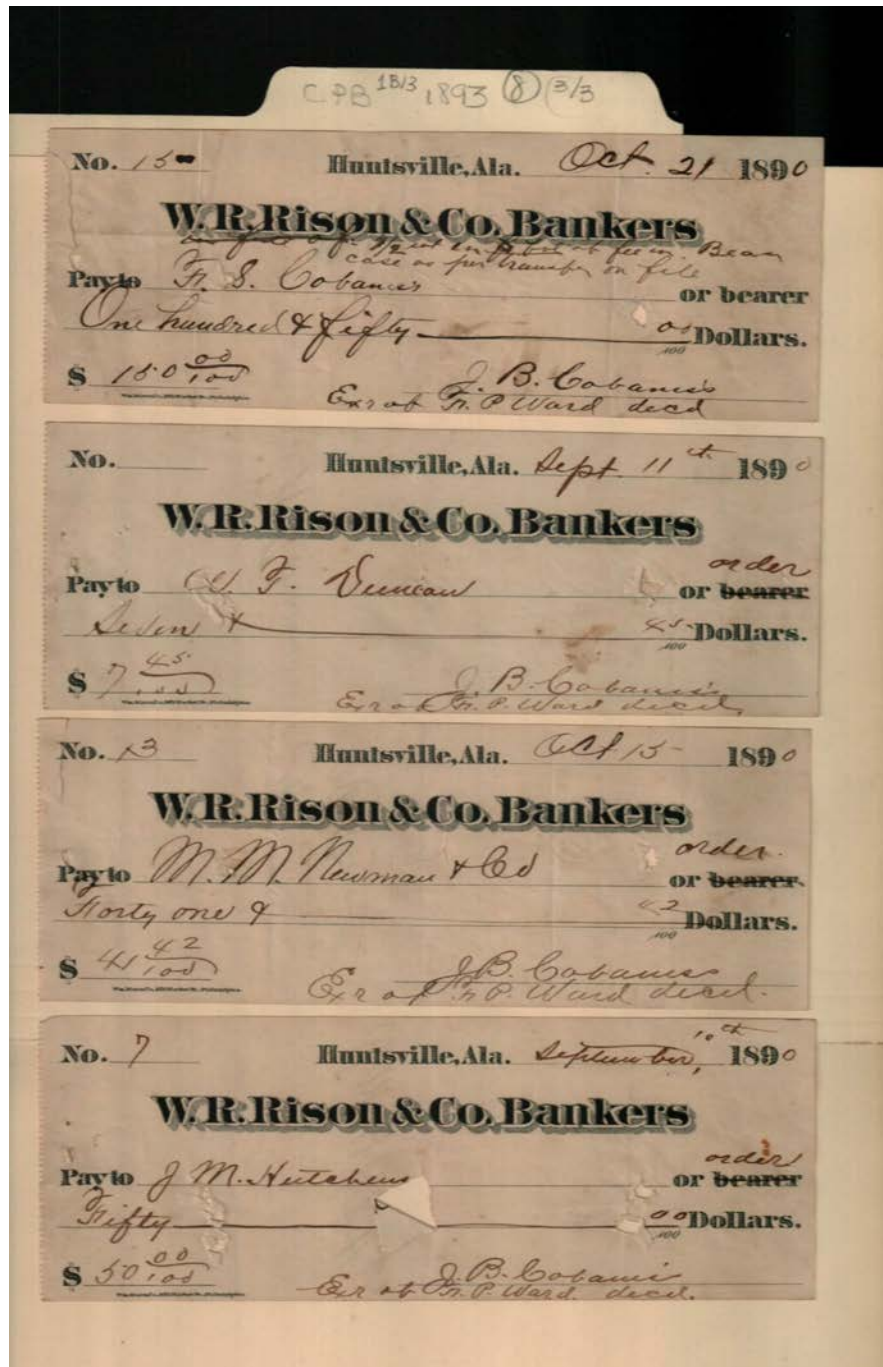 CPB 1B/3 1893 (8) (3/3
No. 15
Huntsville, Ala. Oct. 21 1890
W. R. Rison & Co. Bankers
in fee in Bean
case as per transfer on file
Pay to F. S. Cabaniss or bearer
One hundred & fifty 00/100 Dollars.
$ 150 00/100
J. B. Cabaniss
Exr of F. P. Ward decd
No.
Huntsville, Ala. Sept. 11th 1890
W. R. Rison & Co. Bankers
order
Pay to W. F. Duncan or bearer
Seven & 45/100 Dollars.
$ 7 45/100
J. B. Cabaniss
Exr of F. P. Ward decd.
No. 13
Huntsville, Ala. Oct 15 1890
W. R. Rison & Co. Bankers
order.
Pay to M. M. Newman & Co or bearer.
Forty one & 42/100 Dollars.
$ 41 42/100
J. B. Cabaniss
Exr of F. P. Ward decd.
No. 7
Huntsville, Ala. September, 10th 1890
W. R. Rison & Co. Bankers
order
Pay to J M. Hutchens or bearer
Fifty 00/100 Dollars.
$ 50 00/100
J. B. Cabaniss
Exr of F. P. Ward. decd.